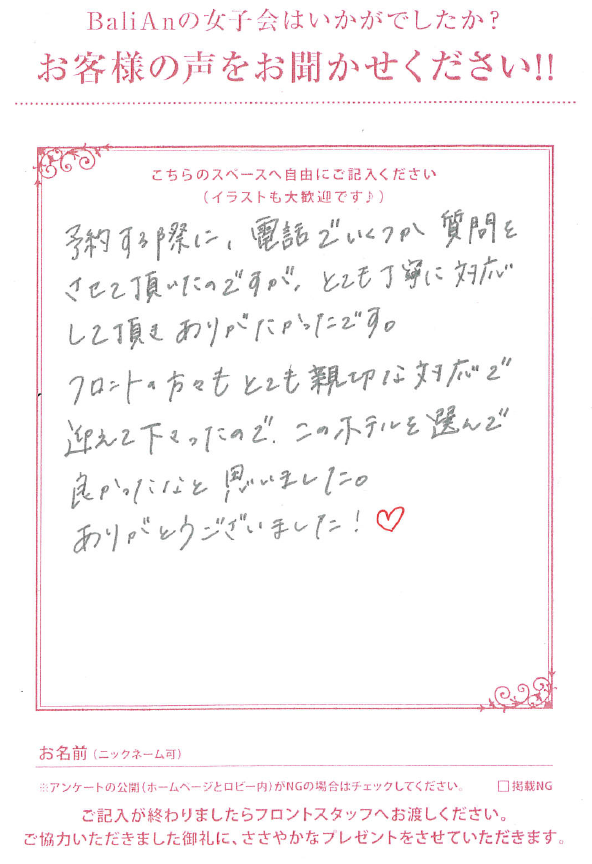 BaliAnの女子会はいかがでしたか?
お客様の声をお聞かせください!!
こちらのスペースへ自由にご記入ください
(イラストも大歓迎です♪)
予約する際に、電話でいくつか質問を
させて頂いたのですが、とても丁寧に対応
して頂きありがたかったです。
フロントの方々もとても親切な対応で
迎えて下さったので、このホテルを選んで
良かったなと思いました。
ありがとうございました!♡
お名前(ニックネーム可)
※アンケートの公開(ホームページとロビー内)がNGの場合はチェックしてください。 □掲載NG
ご記入が終わりましたらフロントスタッフへお渡しください。
ご協力いただきました御礼に、ささやかなプレゼントをさせていただきます。